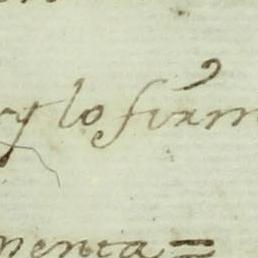 y lo firm
menta =